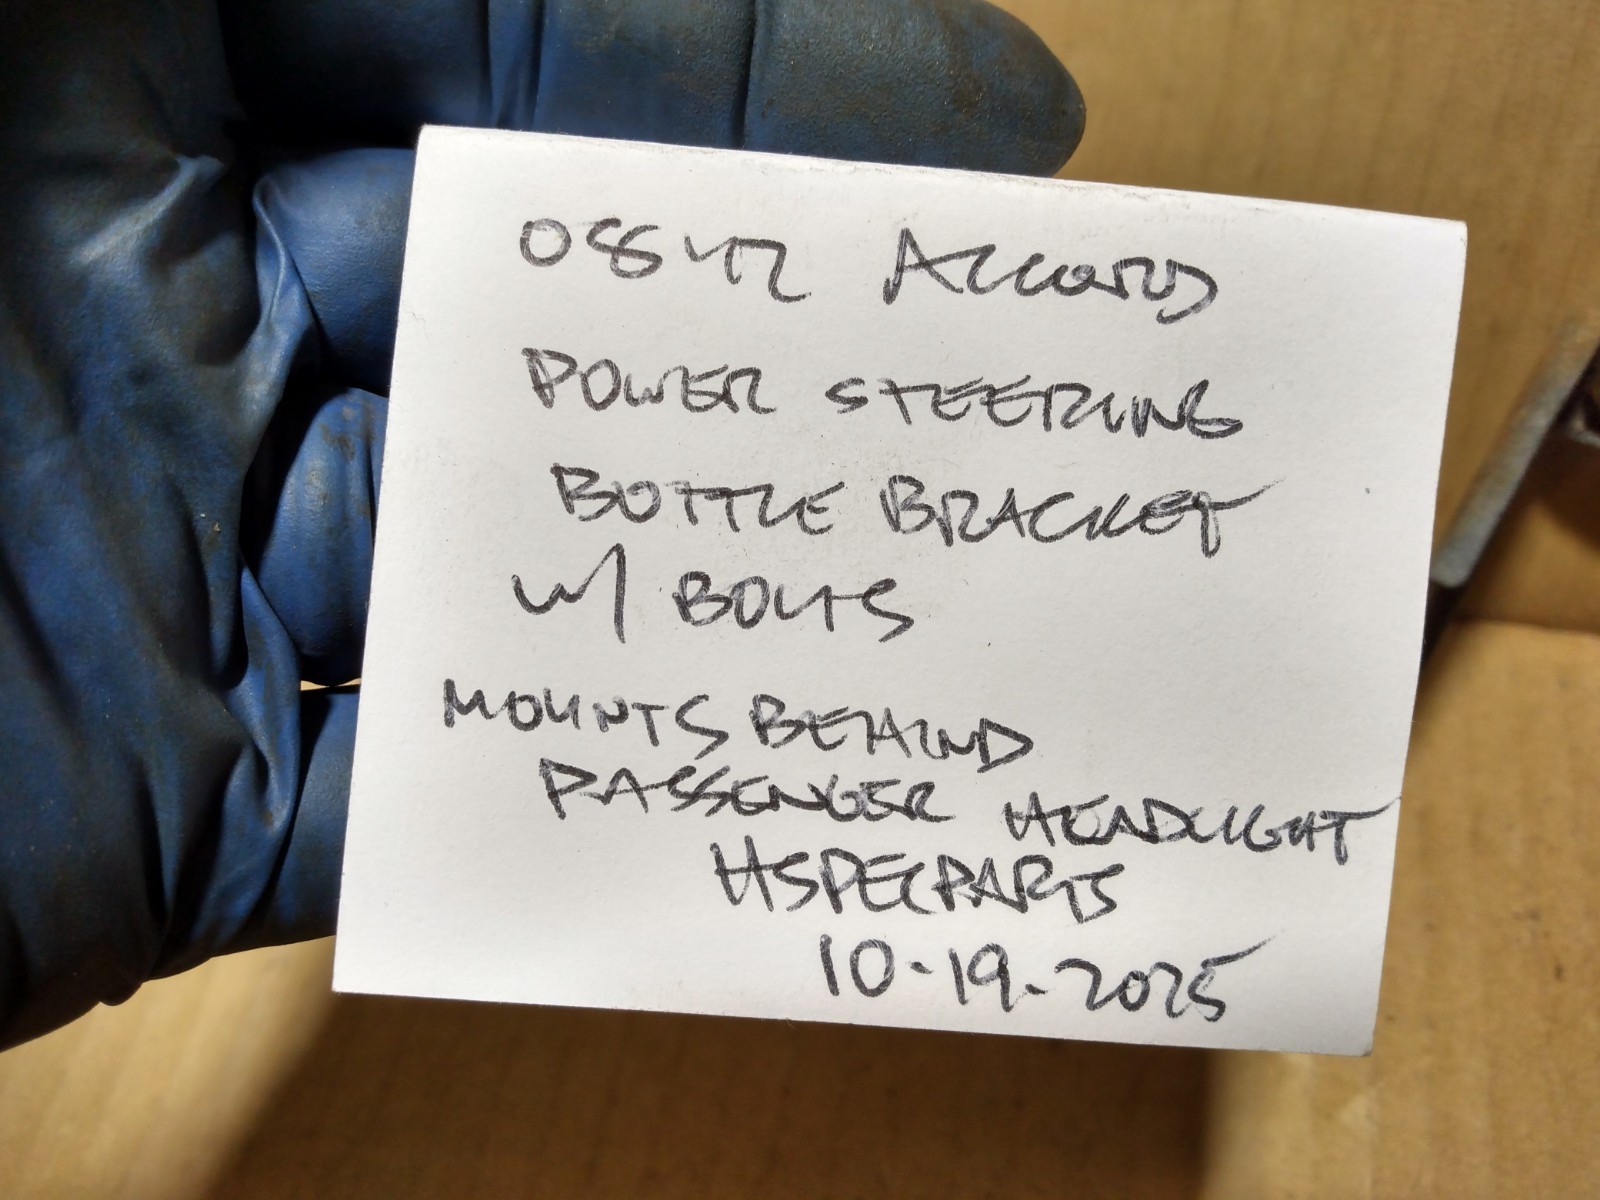 08 4 2 ACCORD
POWER STEERING
BOTTLE BRACKET
W/ BOLTS
MOUNTS BEHIND
PASSENGER HEADLIGHT
HSPECPARTS
10-19-2025